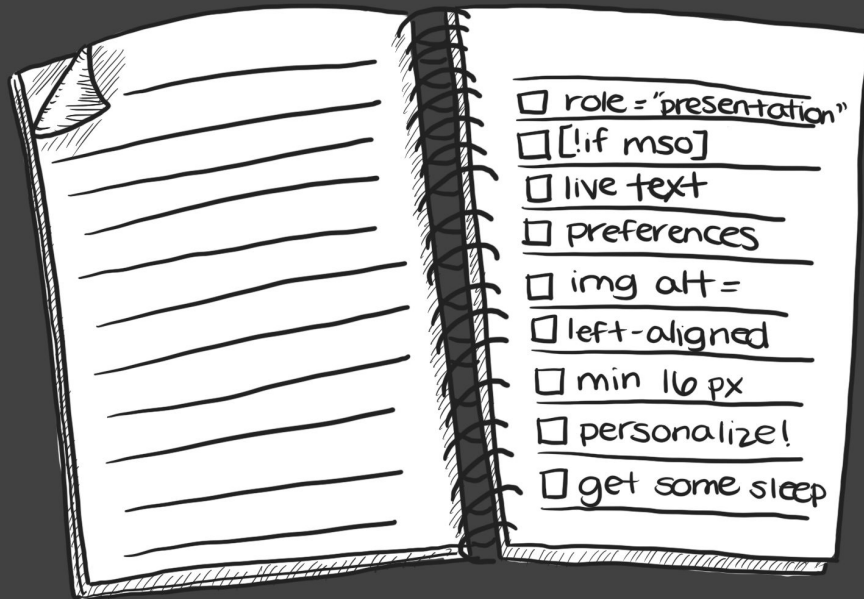 role="presentation"
[!if mso]
live text
preferences
img alt=
left-aligned
min 16 px
personalize!
get some sleep